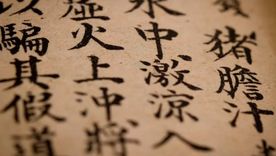 猪膽汁
中激涼入
虛火上沖將
以騙其假道